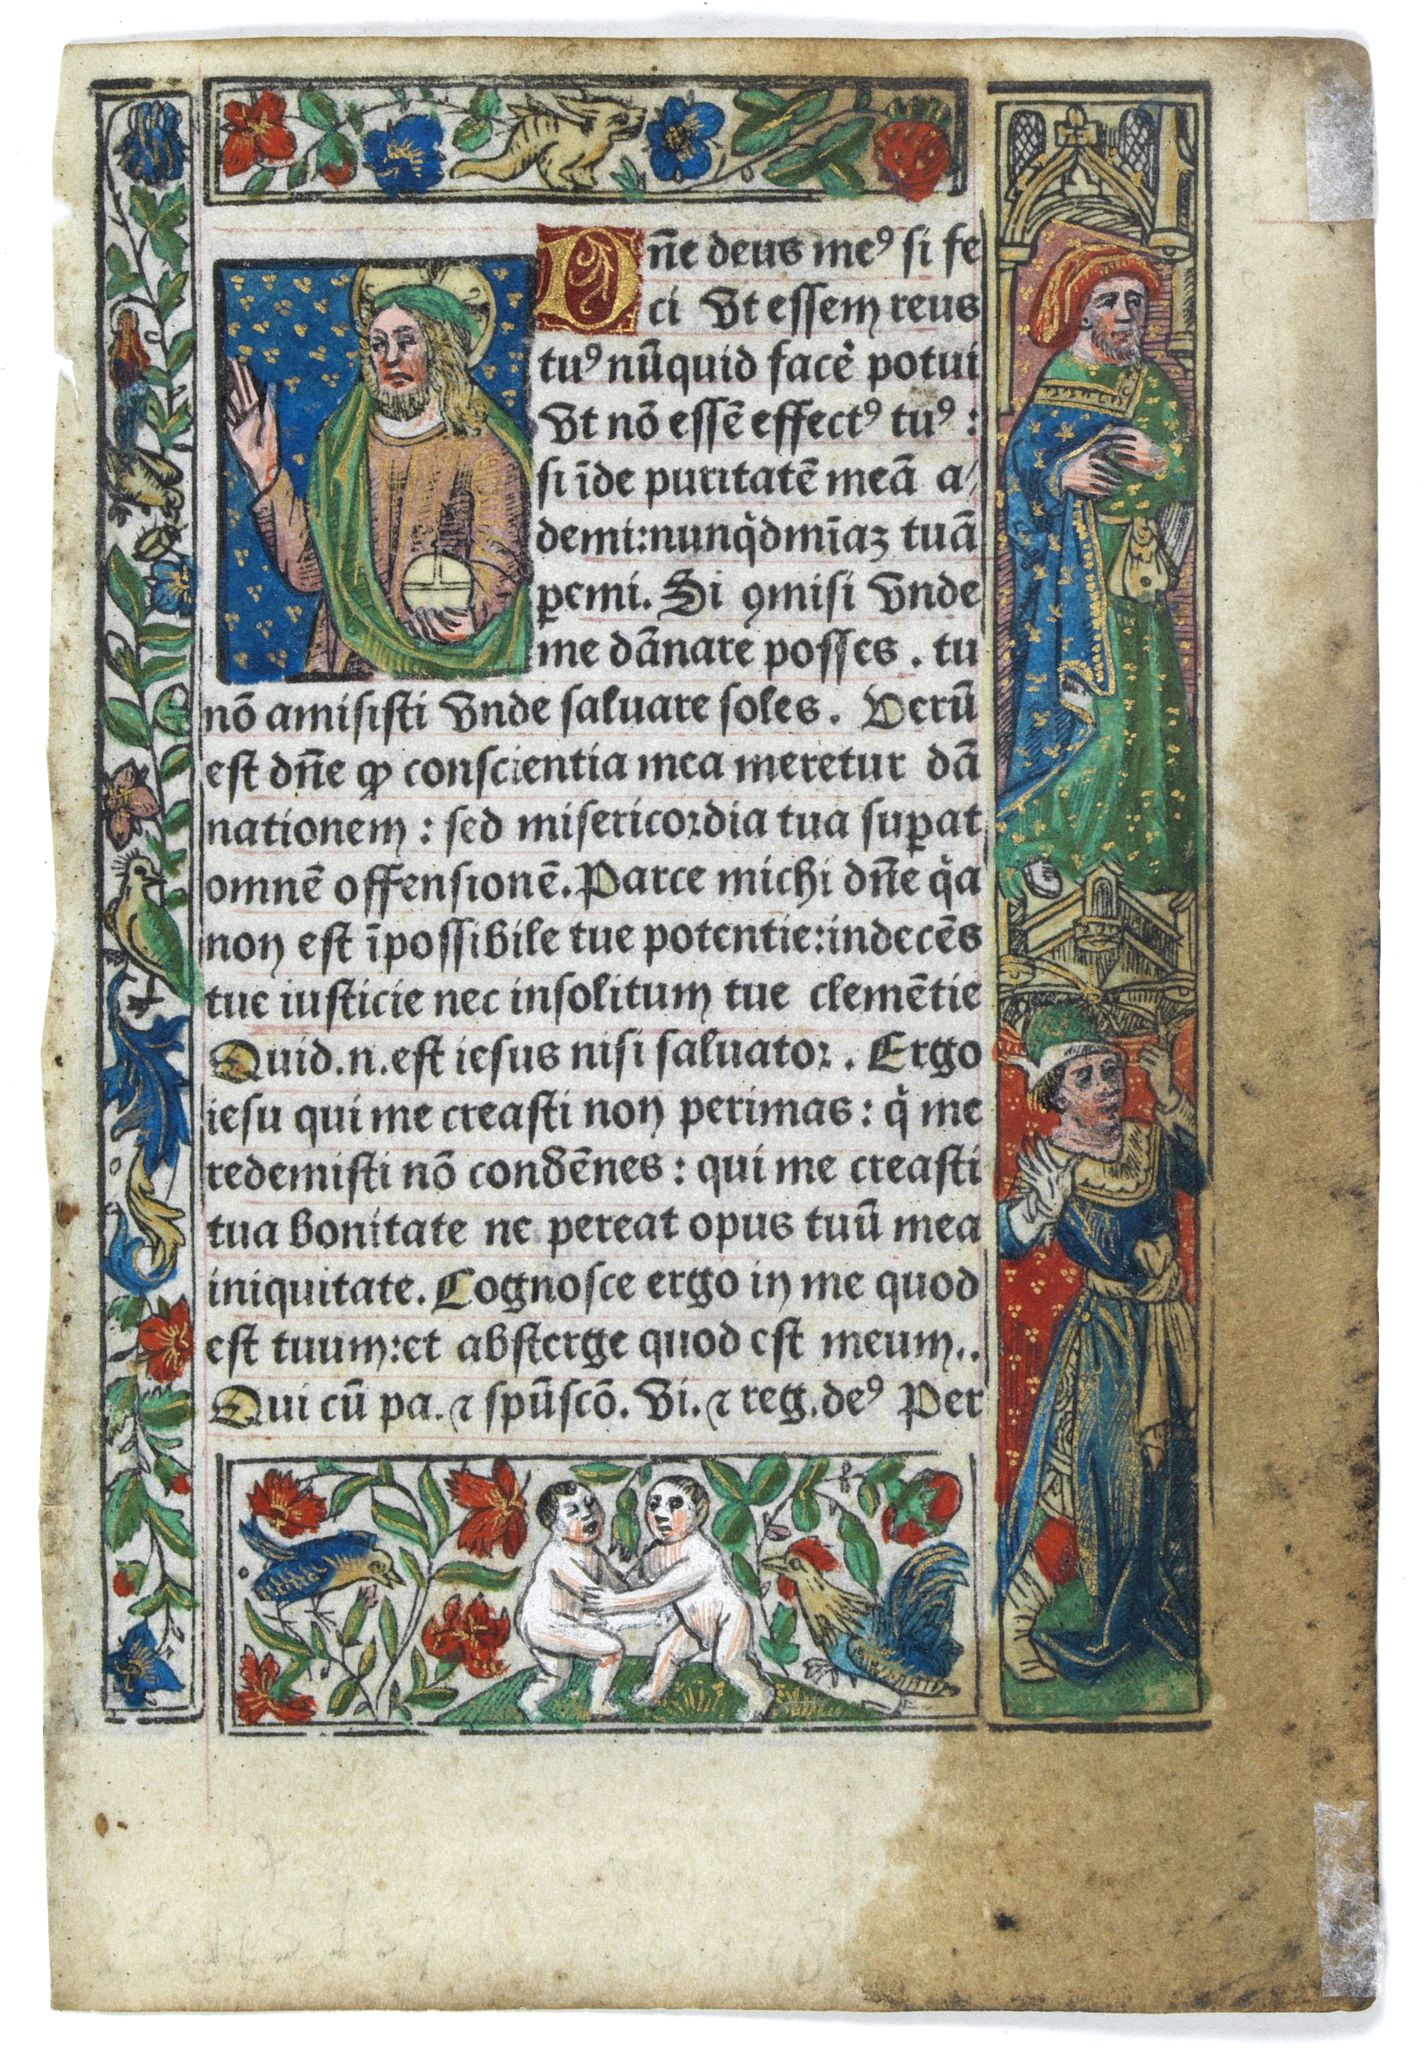 Dn̄e deus meꝰ si fe
ci Vt essem reus
tuꝰ nūquid facẽ potui
Vt nō essē effectꝰ tuꝰ :
si īde puritatē meā a/
demi: nunq̇d mīaꝫ tuā
ꝑemi. Si ꝯmisi Vnde
me dānare posses . tu
nō amisisti Vnde saluare soles . Verū
est dn̄e ꝙ conscientia mea meretur dā
nationem : sed misericordia tua suꝑat
omnē offensionē. Parce michi dn̄e q̇a
non est īpossibile tue potentie: indecēs
tue iusticie nec insolitum tue clemētie
Quid .n. est iesus nisi saluator . Ergo
iesu qui me creasti non perimas : q̇ me
redemisti nō condēnes : qui me creasti
tua bonitate ne pereat opus tuū mea
iniquitate. Cognosce ergo in me quod
est tuum: et absterge quod est meum..
Qui cū pa. ⁊ spūscō. Vi. ⁊ reg. deꝰ Per